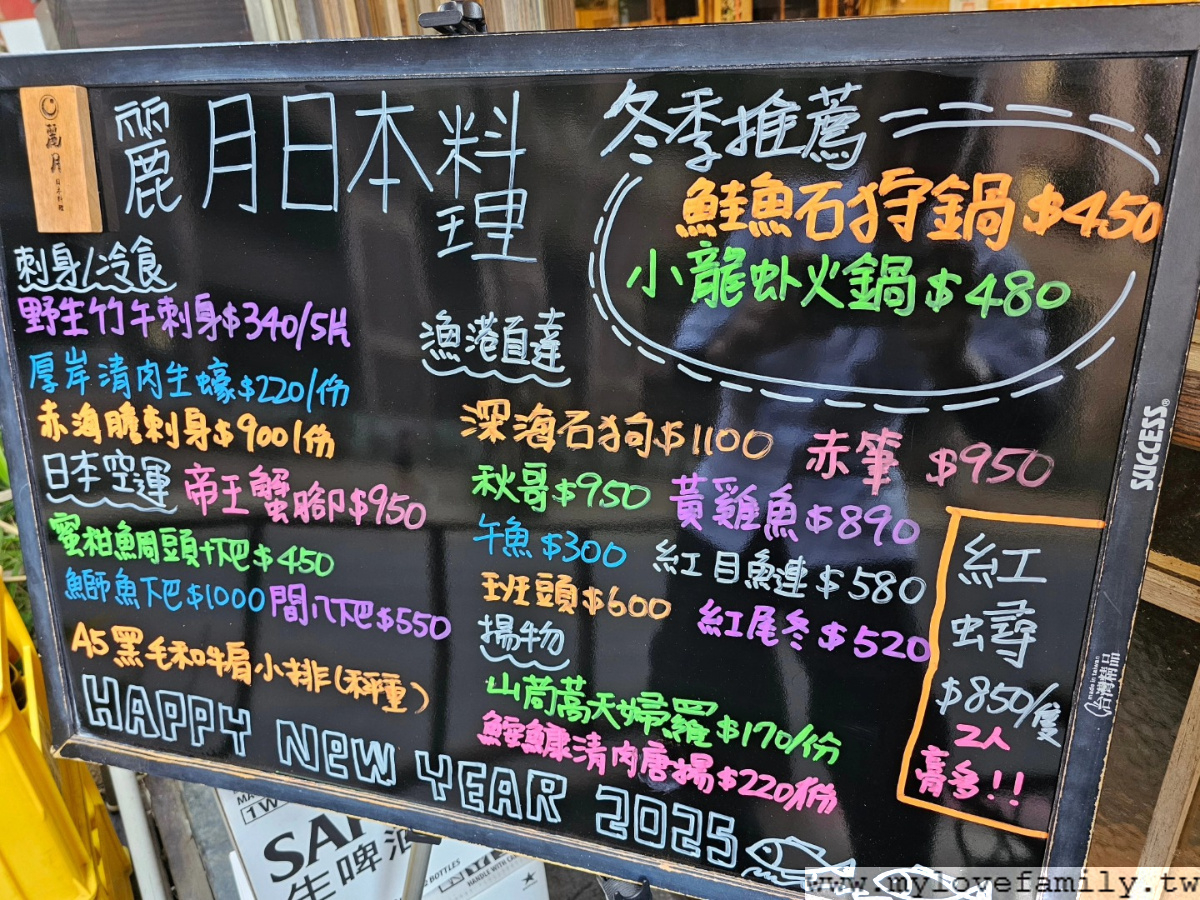 麗月
日本料理
麗月日本料理
冬季推薦
鮭魚石狩鍋$450
小龍虾火鍋$480
刺身/冷食
野生竹午刺身$340/5片
厚岸清肉生蠔$220/份
赤海膽刺身$900/份
日本空運
帝王蟹腳$950
蜜柑鯛頭下巴$450
鰤魚下巴$1000
間八下巴$550
A5黑毛和牛肩小排(秤重)
漁港直達
深海石狗$1100
赤筆 $950
秋哥$950
黃雞魚$890
午魚$300
紅目魚連$580
班頭$600
紅尾冬$520
揚物
山茼蒿天婦羅$170/份
鮟鱇清肉唐揚$220/份
紅蟳
$850/隻
2人
膏多!!
HAPPY NEW YEAR 2025
SUCCESS®
made in taiwan
台灣精品
生啤酒
BOTTLES
HANDLE WITH CARE
www.mylovefamily.tw